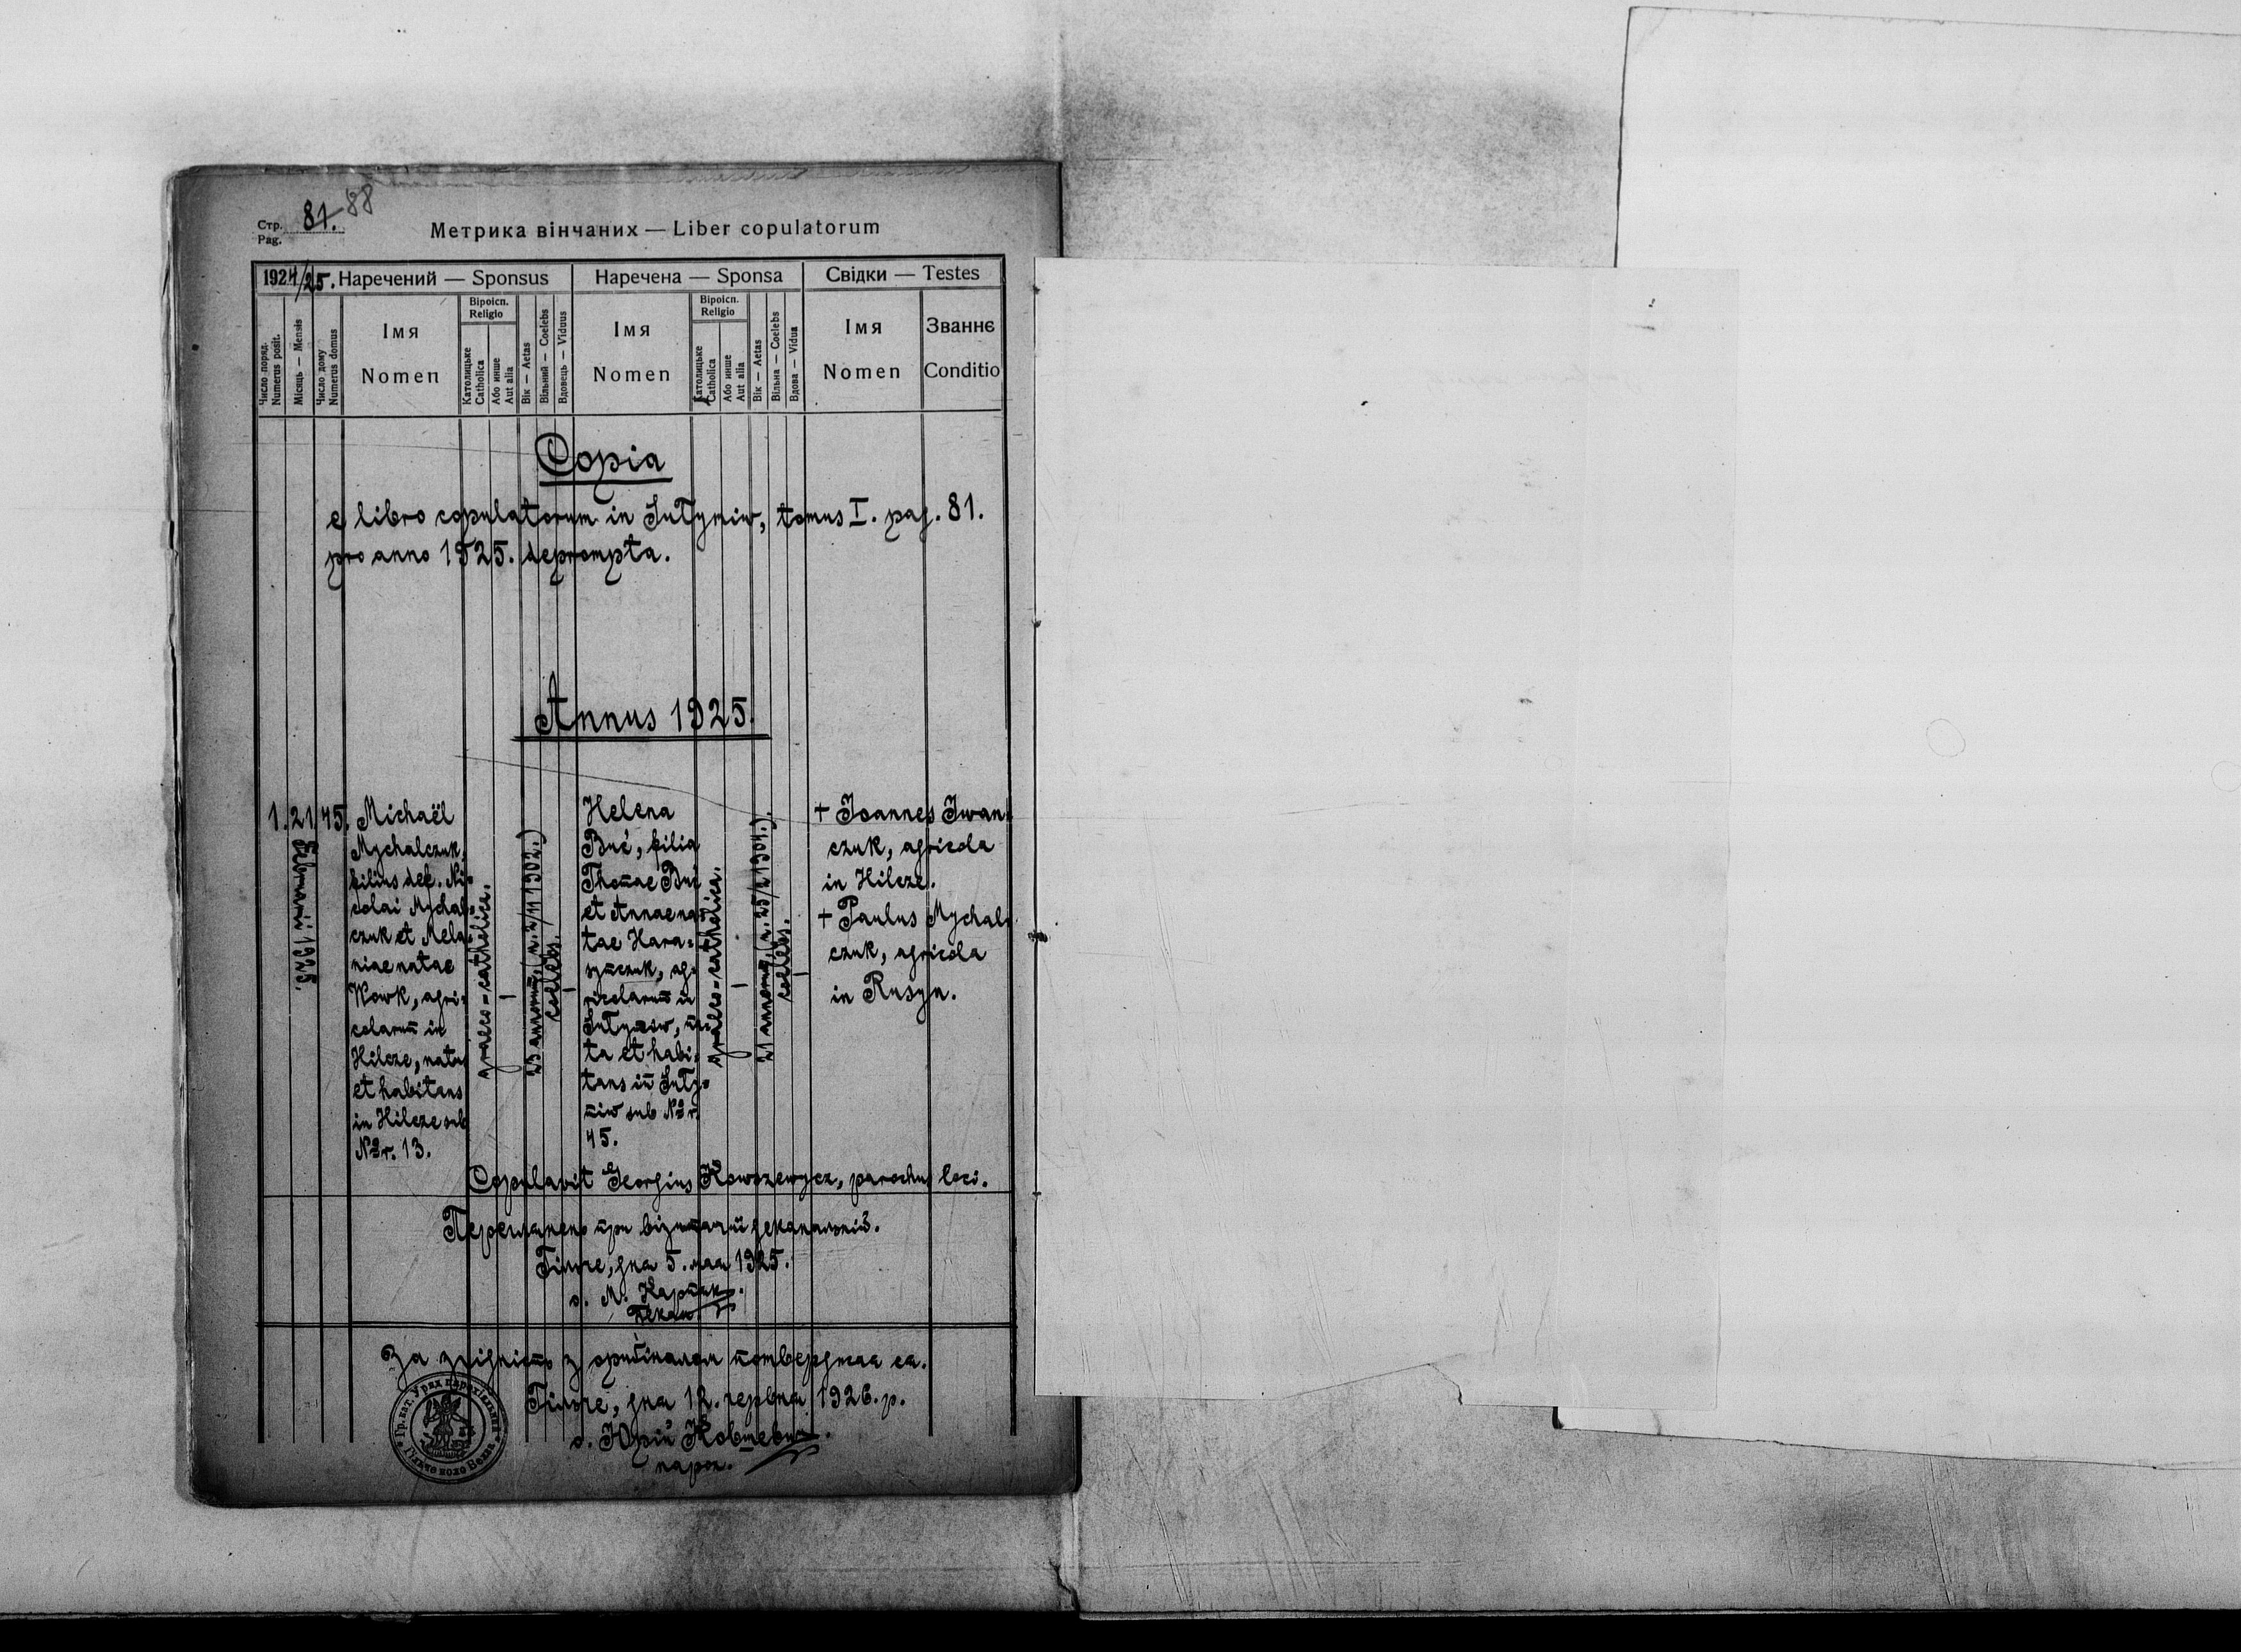 Стр. 81. 88
Pag.
Метрика вінчаних — Liber copulatorum
1924/25. Наречений — Sponsus
Наречена — Sponsa
Свідки — Testes
Число поряд.
Numerus posit.
Місяць — Mensis
Число дому
Numerus domus
Імя
Nomen
Віроісп.
Religio
Католицьке
Catholica
Або инше
Aut alia
Вік — Aetas
Вільний — Coelebs
Вдовець — Viduus
Імя
Nomen
Віроісп.
Religio
Католицьке
Catholica
Або инше
Aut alia
Вік — Aetas
Вільна — Coelebs
Вдова — Vidua
Імя
Nomen
Званнє
Conditio
Copia
e libro copulatorum in Sutyniw, tomus I. pag. 81.
pro anno 1925. deprompta.
Annus 1925.
1. 21 45.
Februarii 1925.
Michaël
Mychalczuk,
filius def. Ni=
colai Mychal=
czuk et Mela=
niae natae
Wowk, agri=
colarum in
Hilcze, natus
et habitans
in Hilcze sub
Nr. 13.
graeco-catholica.
—
23 annorum, (n. 2/11 1902.)
coelebs.
—
Helena
Buć, filia
Thomae Buć
et Annae na=
tae Hara=
symczuk, ag=
ricolarum in
Sutyniw, na=
ta et habi=
tans in Suty=
niw sub Nr.
45.
graeco-catholica.
—
21 annorum, (n. 25/2 1904.)
coelebs.
—
+ Joannes Iwan=
czuk, agricola
in Hilcze.
+ Paulus Mychal=
czuk, agricola
in Rusyn.
Copulavit Georgius Kowszewycz, parochus loci.
Переглянено при візитації деканальній.
Гільче, дня 5. мая 1925.
о. М.
Декан
За згідність з оригіналом потверджая ся.
Гільче, дня 12. червня 1926. р.
о. Юрій Ковшевич.
парох.
Гр. кат. Уряд парохіяльний
Гільче коло Белза